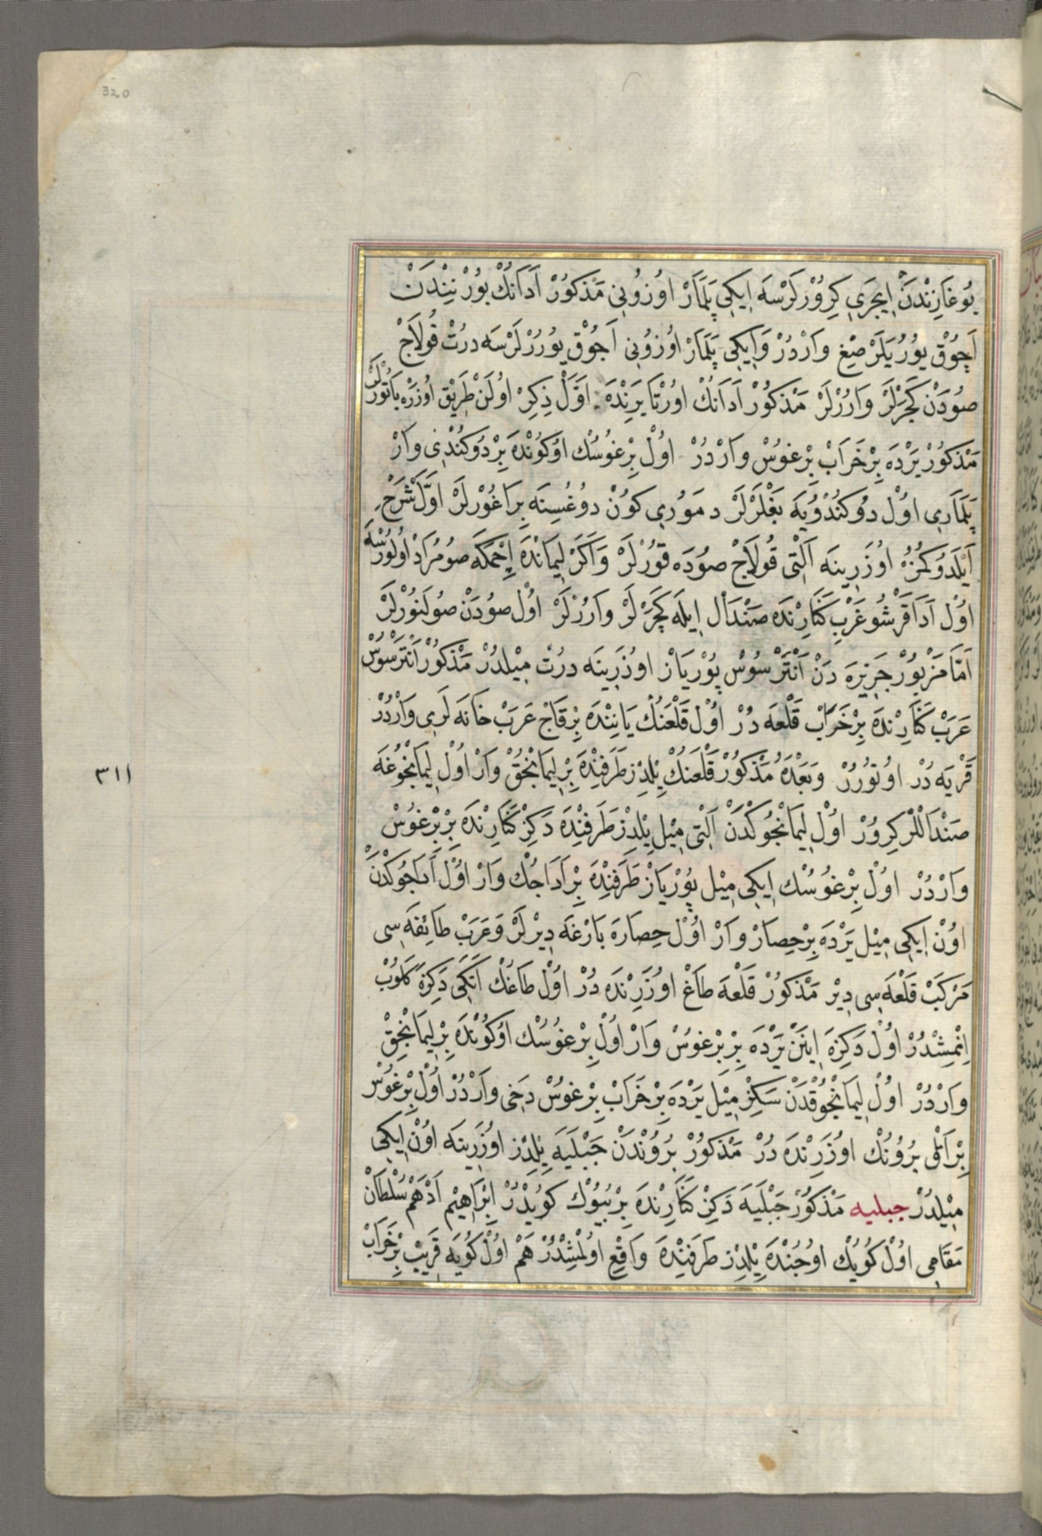 320
بُوغَازِنْدَنْ اِیچَرِی كِرُورْلَرْسَه اِیكِی پَلَمَارْ اوُزوُنِی مَذْكُورْ اَدَانُكْ بُورْنِنْدَنْ
اَچُوقْ یُورُیَلَرْ صِغْ وَارْدُرْ وَاِیكِی پَلَمَارْ اوُزوُنِی اَچُوقْ یُورُرْلَرْسَه دُرتْ قُولَاجْ
صُودَنْ كَچَرْلَرْ وَارُرْلَرْ مَذْكُورْ اَدَانُكْ اوُرْتَا یَرِنْدَه اَوَّلْ ذِكِرْ اوُلَنْ طَرِیقْ اوُزَرَه یَاتُورْلَرْ
مَذْكُورْ یَرْدَه بِرْخَرَابْ بِرْغُوسْ وَارْدُرْ اوُلْ بِرْغُوسُكْ اوُكُونْدَه بِرْ دُوكُنْدِی وَارْ
پَلَمَارِی اوُلْ دُوكُنْدُویَه بَغْلَرْلَرْ دَمُورِی كُونْ دُوغُسِنَه بِرَاغُورْلَرْ اَوَّلْ شَرْحْ
اَیْلَدُوكُمُزْ اوُزَرِینَه اَلْتِی قُولَاجْ صُودَه قُورْلَرْ وَاَكَرْ لِیمَانْدَه اِچْمَكَه صُو مُرَادْ اوُلُورْسَه
اوُلْ اَدَا قَرْشُو عَرَبْ كَنَارِنْدَه صَنْدَالْ اِیلَه كَچَرْلَرْ وَارُرْلَرْ اوُلْ صُودَنْ صُولَنُورْلَرْ
اَمَّا مَزْبُورْ جَزِیرَه دَنْ اَنْتَرْسُوسْ پُورْیَازْ اوُزَرِینَه دُرتْ مِیْلْدُرْ مَذْكُورْ اَنْتَرْسُوسْ
عَرَبْ كَنَارِنْدَه بِرْخَرَابْ قَلْعَه دُرْ اوُلْ قَلْعَنُكْ یَانِنْدَه بِرْقَاجْ عَرَبْ خَانَه لَرِی وَارْدُرْ
قَرْیَه دُرْ اوُتُورُرْ وَبَعْدَه مَذْكُورْ قَلْعَنُكْ یِلْدِزْ طَرَفِنْدَه بِرْلِیمَانْجُقْ وَارْ اوُلْ لِیمَانْجُوغَه
صَنْدَاللَّرْ كِرُورْ اوُلْ لِیمَانْجُوكْدَنْ اَلْتِی مِیْلْ یِلْدِزْ طَرَفِنْدَه دَكِزْ كَنَارِنْدَه بِرْبِرْغُوسْ
وَارْدُرْ اوُلْ بِرْغُوسُكْ اِیكِی مِیْلْ پُورْیَازْ طَرَفِنْدَه بِرْ اَدَاجُكْ وَارْ اوُلْ اَدَاجُوكْدَنْ
اوُنْ اِیكِی مِیْلْ یَرْدَه بِرْحِصَارْ وَارْ اوُلْ حِصَارَه بَارْغَه دِیرْلَرْ وَعَرَبْ طَائِفَه سِی
مَرْكَبْ قَلْعَه سِی دِیرْ مَذْكُورْ قَلْعَه طَاغْ اوُزَرِنْدَه دُرْ اوُلْ طَاغُكْ اَتَكِی دَكِزَه كَلُوبْ
اِنْمِشْدُرْ اوُلْ دَكِزَه اِینَنْ یَرْدَه بِرْبِرْغُوسْ وَارْ اوُلْ بِرْغُوسُكْ اوُكُونْدَه بِرْلِیمَانْجِقْ
وَارْدُرْ اوُلْ لِیمَانْجُوقْدَنْ سَكِزْ مِیْلْ یَرْدَه بِرْخَرَابْ بِرْغُوسْ دَخِی وَارْدُرْ اوُلْ بِرْغُوسْ
بِرْ اَلْچَاقْ بُرُونُكْ اوُزَرِنْدَه دُرْ مَذْكُورْ بُرُونْدَنْ جَبْلَیَه یِلْدِزْ اوُزَرِینَه اوُنْ اِیكِی
مِیْلْدُرْ جبلیه مَذْكُورْ جَبْلَیَه دَكِزْ كَنَارِنْدَه بِرْ بُیُوكْ كُویْدُرْ اِبْرَاهِیمْ اَدْهَمْ سُلْطَانْ
مَقَامِی اوُلْ كُویُكْ اوُجُنْدَه یِلْدِزْ طَرَفِنْدَه وَاقِعْ اوُلْمِشْدُرْ هَمْ اوُلْ كُویَه قَرِیبْ بِرْخَرَابْ
٣١١